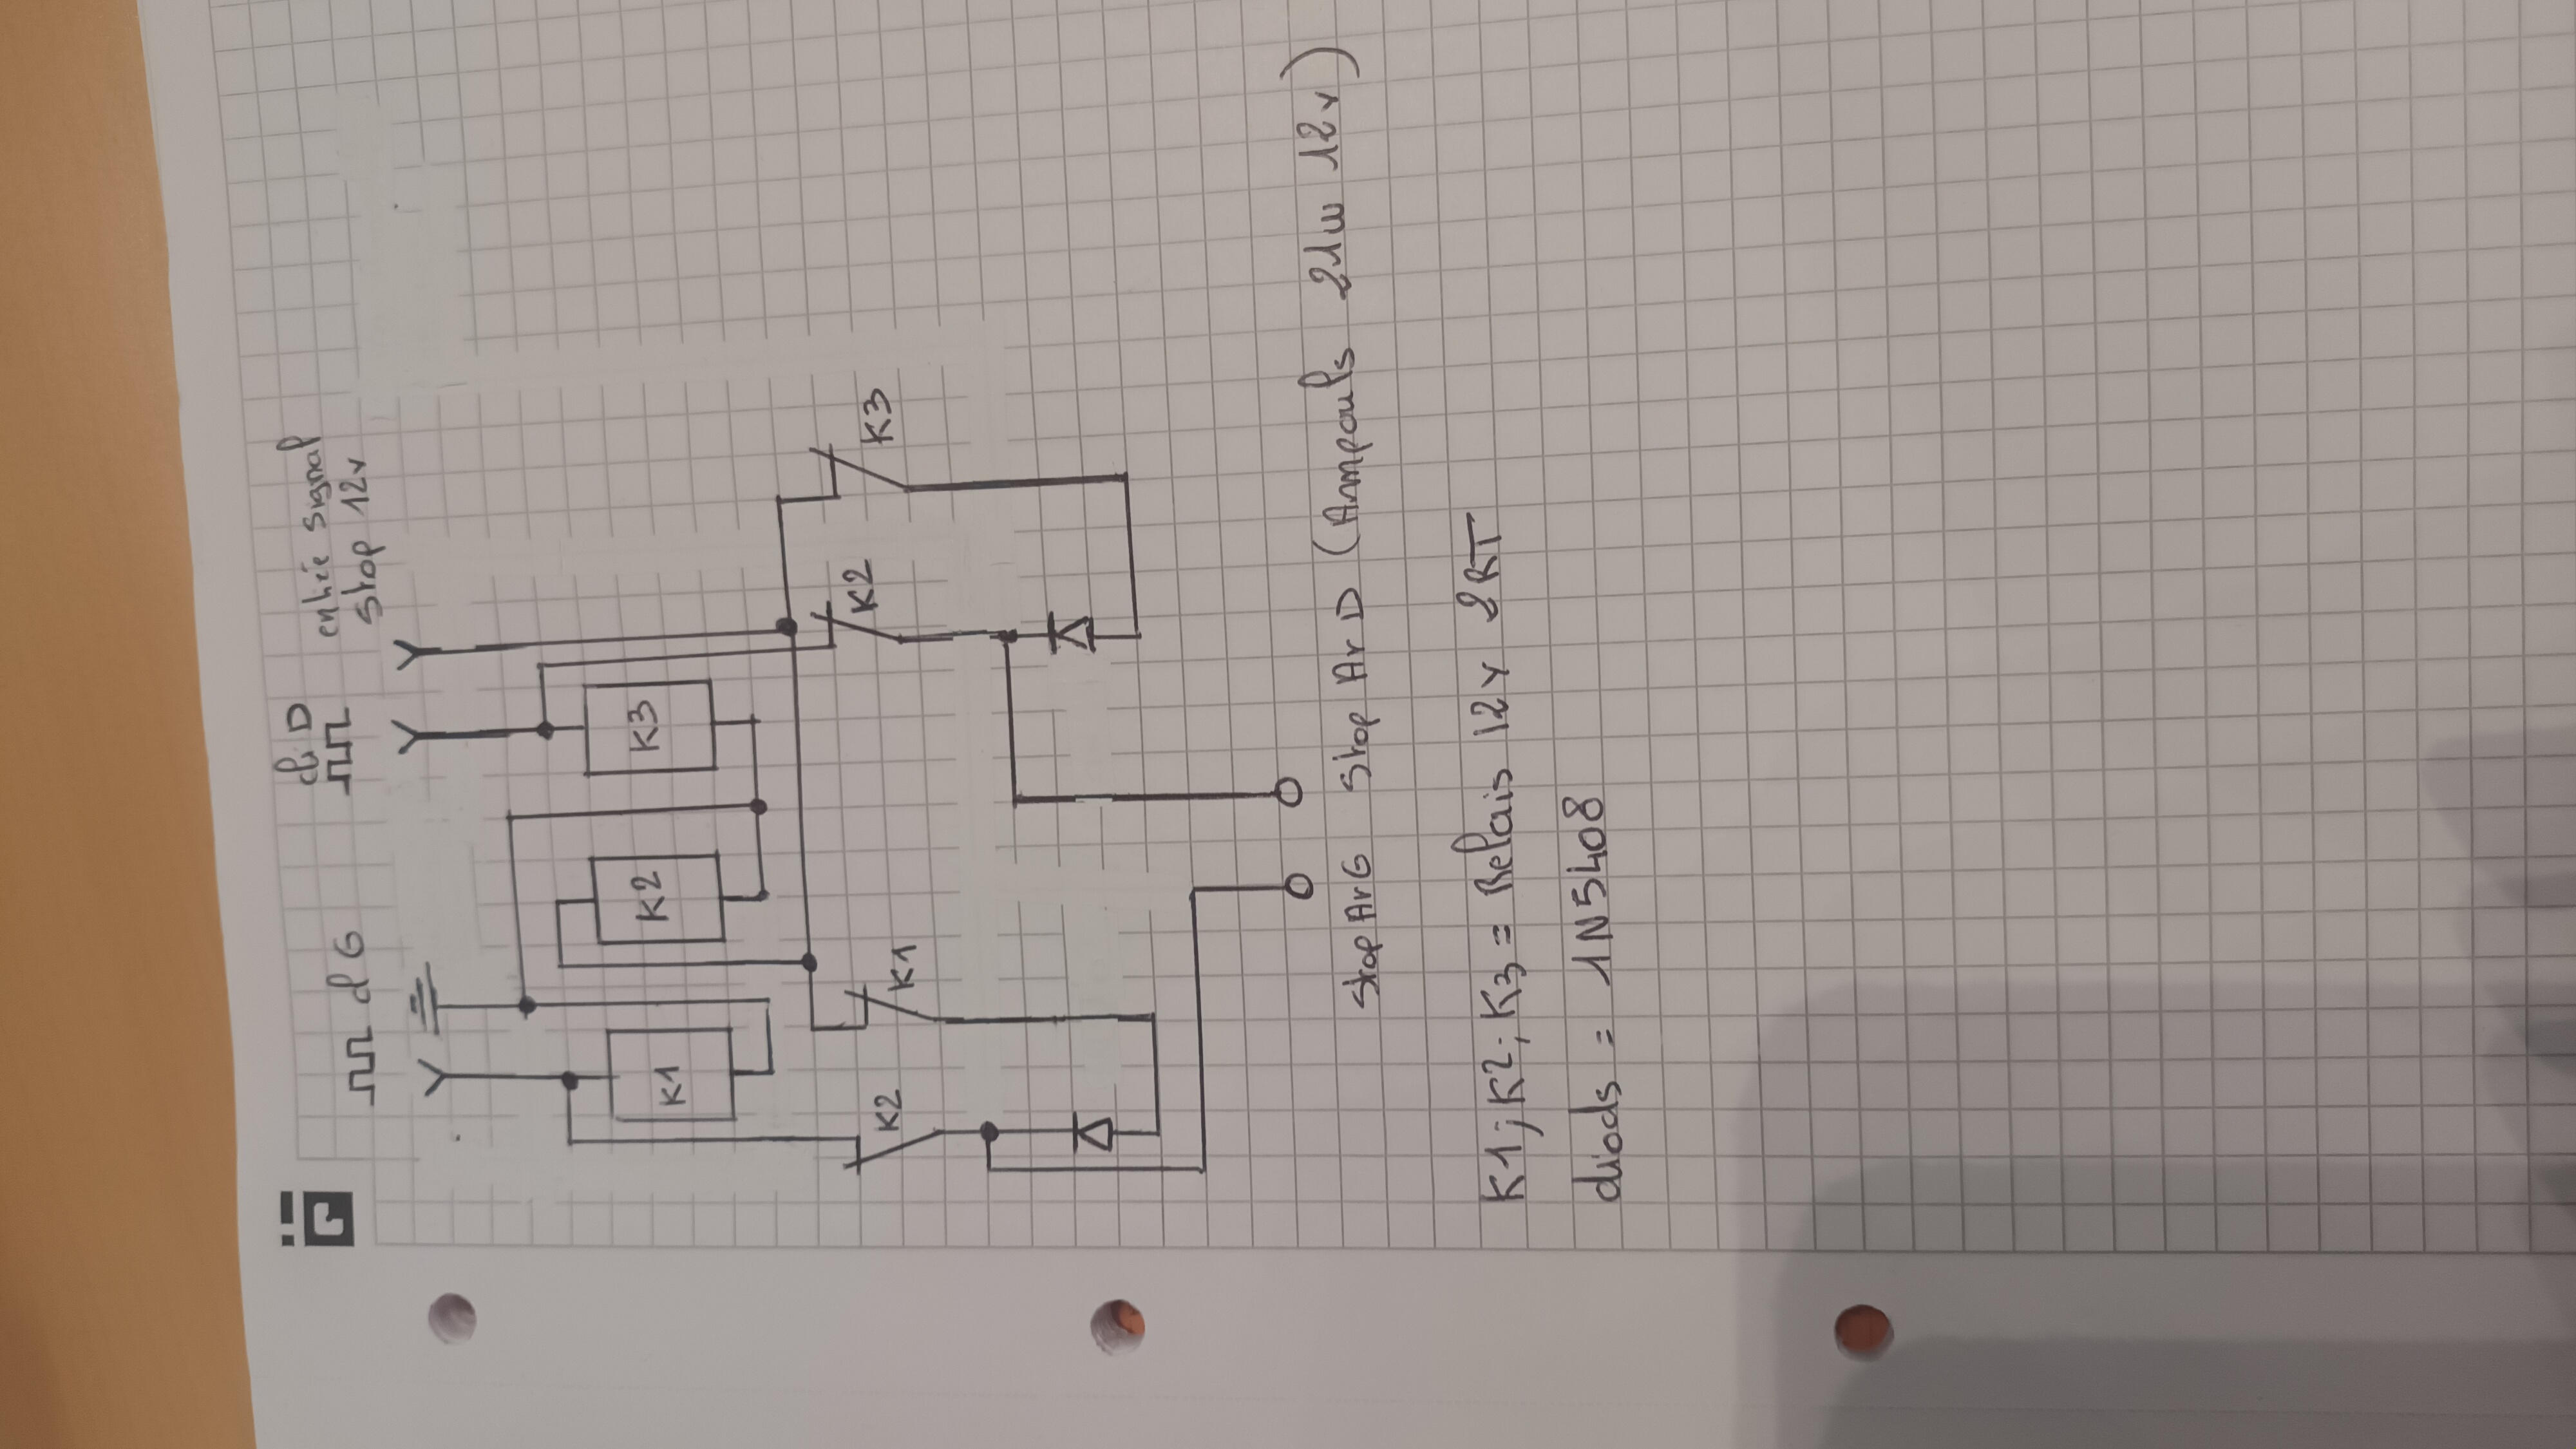 cl G
cl D
entrée signal
stop 12v
K1
K2
K3
K2
K1
K2
K3
Stop Ar G
Stop Ar D (Ampouls 21w 12v)
K1; K2; K3 = Relais 12v 2RT
diods = 1N5408